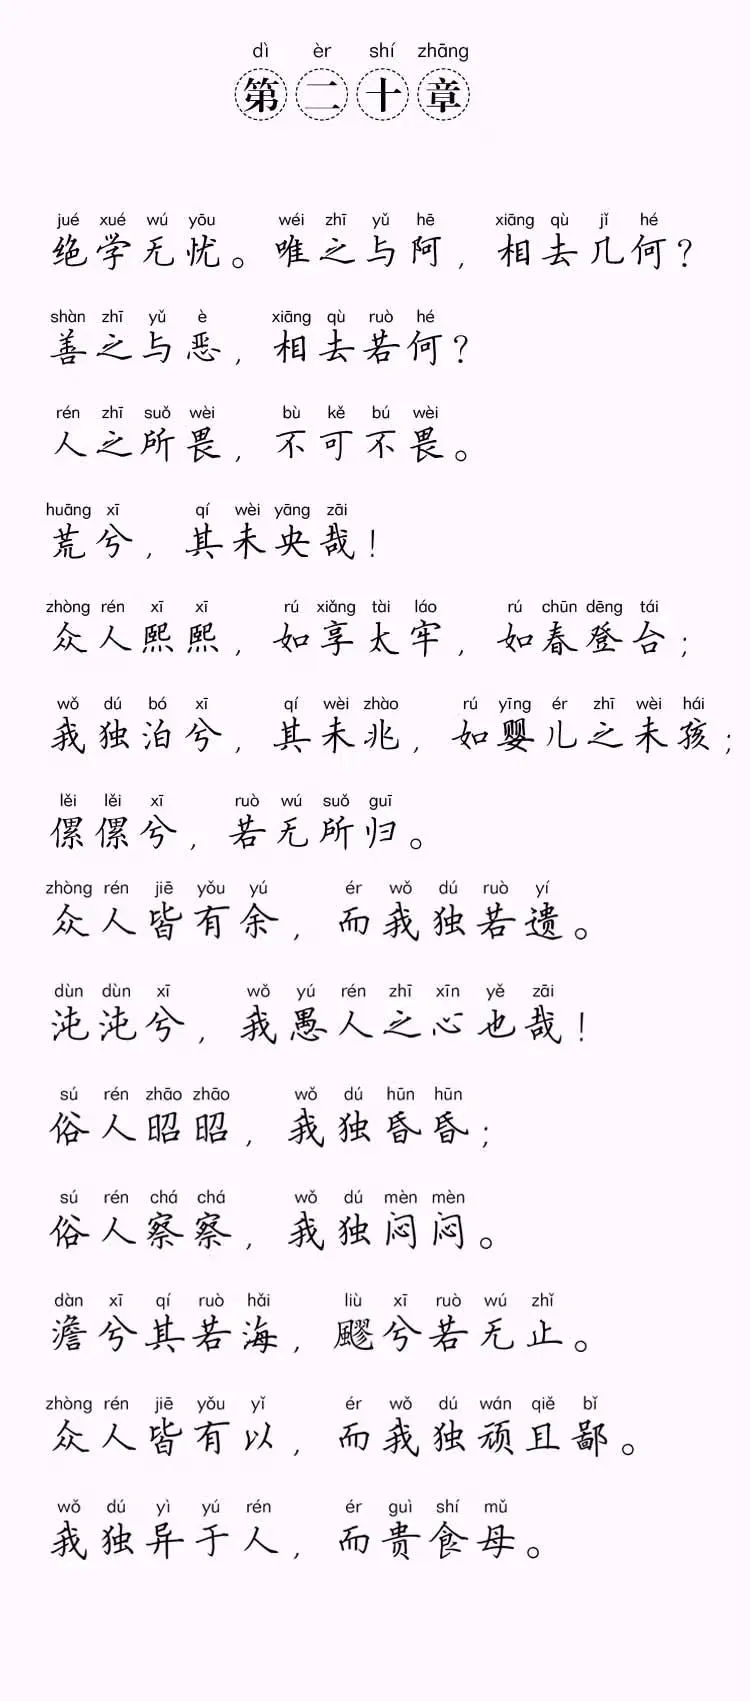 dì èr shí zhāng
第二十章
jué xué wú yōu wéi zhī yǔ hē xiāng qù jǐ hé
绝学无忧。唯之与阿，相去几何？
shàn zhī yǔ è xiāng qù ruò hé
善之与恶，相去若何？
rén zhī suǒ wèi bù kě bú wèi
人之所畏，不可不畏。
huāng xī qí wèi yāng zāi
荒兮，其未央哉！
zhòng rén xī xī rú xiǎng tài láo rú chūn dēng tái
众人熙熙，如享太牢，如春登台；
wǒ dú bó xī qí wèi zhào rú yīng ér zhī wèi hái
我独泊兮，其未兆，如婴儿之未孩；
lěi lěi xī ruò wú suǒ guī
傫傫兮，若无所归。
zhòng rén jiē yǒu yú ér wǒ dú ruò yí
众人皆有余，而我独若遗。
dùn dùn xī wǒ yú rén zhī xīn yě zāi
沌沌兮，我愚人之心也哉！
sú rén zhāo zhāo wǒ dú hūn hūn
俗人昭昭，我独昏昏；
sú rén chá chá wǒ dú mèn mèn
俗人察察，我独闷闷。
dàn xī qí ruò hǎi liù xī ruò wú zhǐ
澹兮其若海，飂兮若无止。
zhòng rén jiē yǒu yǐ ér wǒ dú wán qiě bǐ
众人皆有以，而我独顽且鄙。
wǒ dú yì yú rén ér guì shí mǔ
我独异于人，而贵食母。